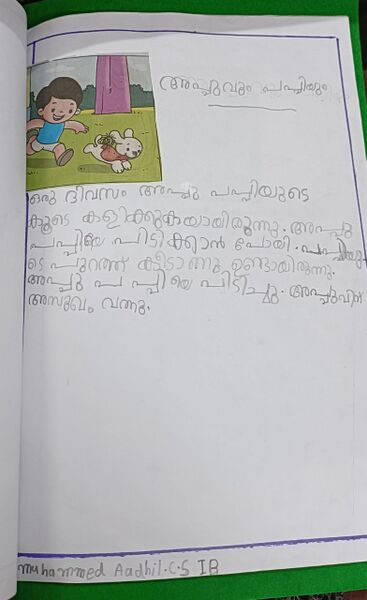 അപ്പുവും പപ്പിയും
ഒരു ദിവസം അപ്പു പപ്പിയുടെ
കൂടെ കളിക്കുകയായിരുന്നു. അപ്പു
പപ്പിയെ പിടിക്കാൻ പോയി. പപ്പിയു
ടെ പുറത്ത് കീടാണു ഉണ്ടായിരുന്നു.
അപ്പു പപ്പിയെ പിടിച്ചു. അപ്പുവിന്
അസുഖം വന്നു.
muhammed Aadhil.C.S IB